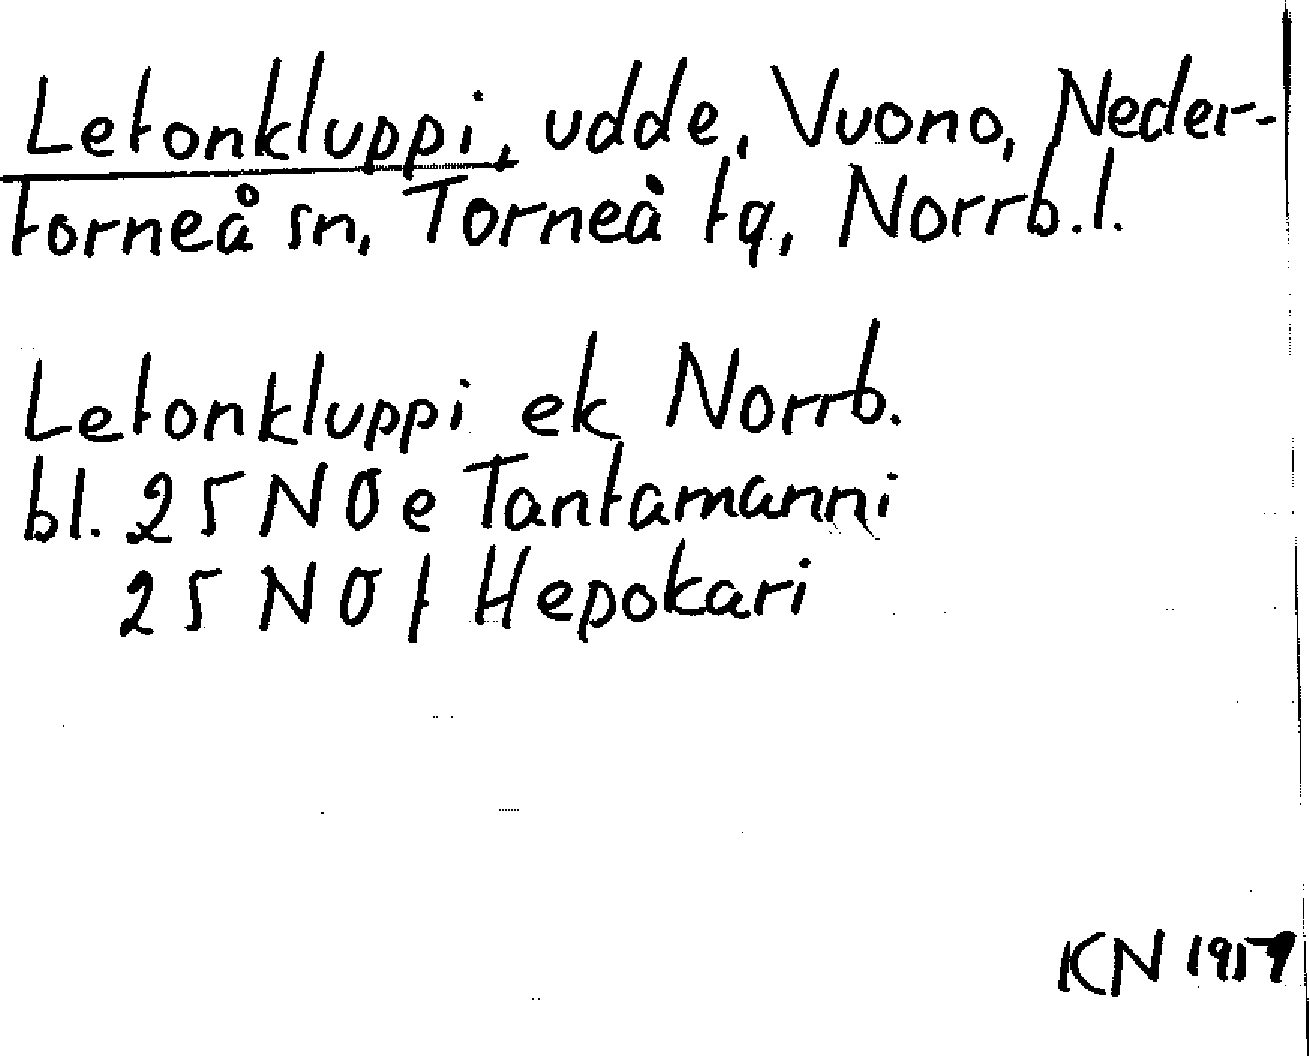 Letonkluppi, udde, Vuono, Neder-
torneå sn, Torneå tg, Norrb.l.
Letonkluppi ek Norrb.
bl. 25 NO e Tantamanni
25 NO f Hepokari
KN